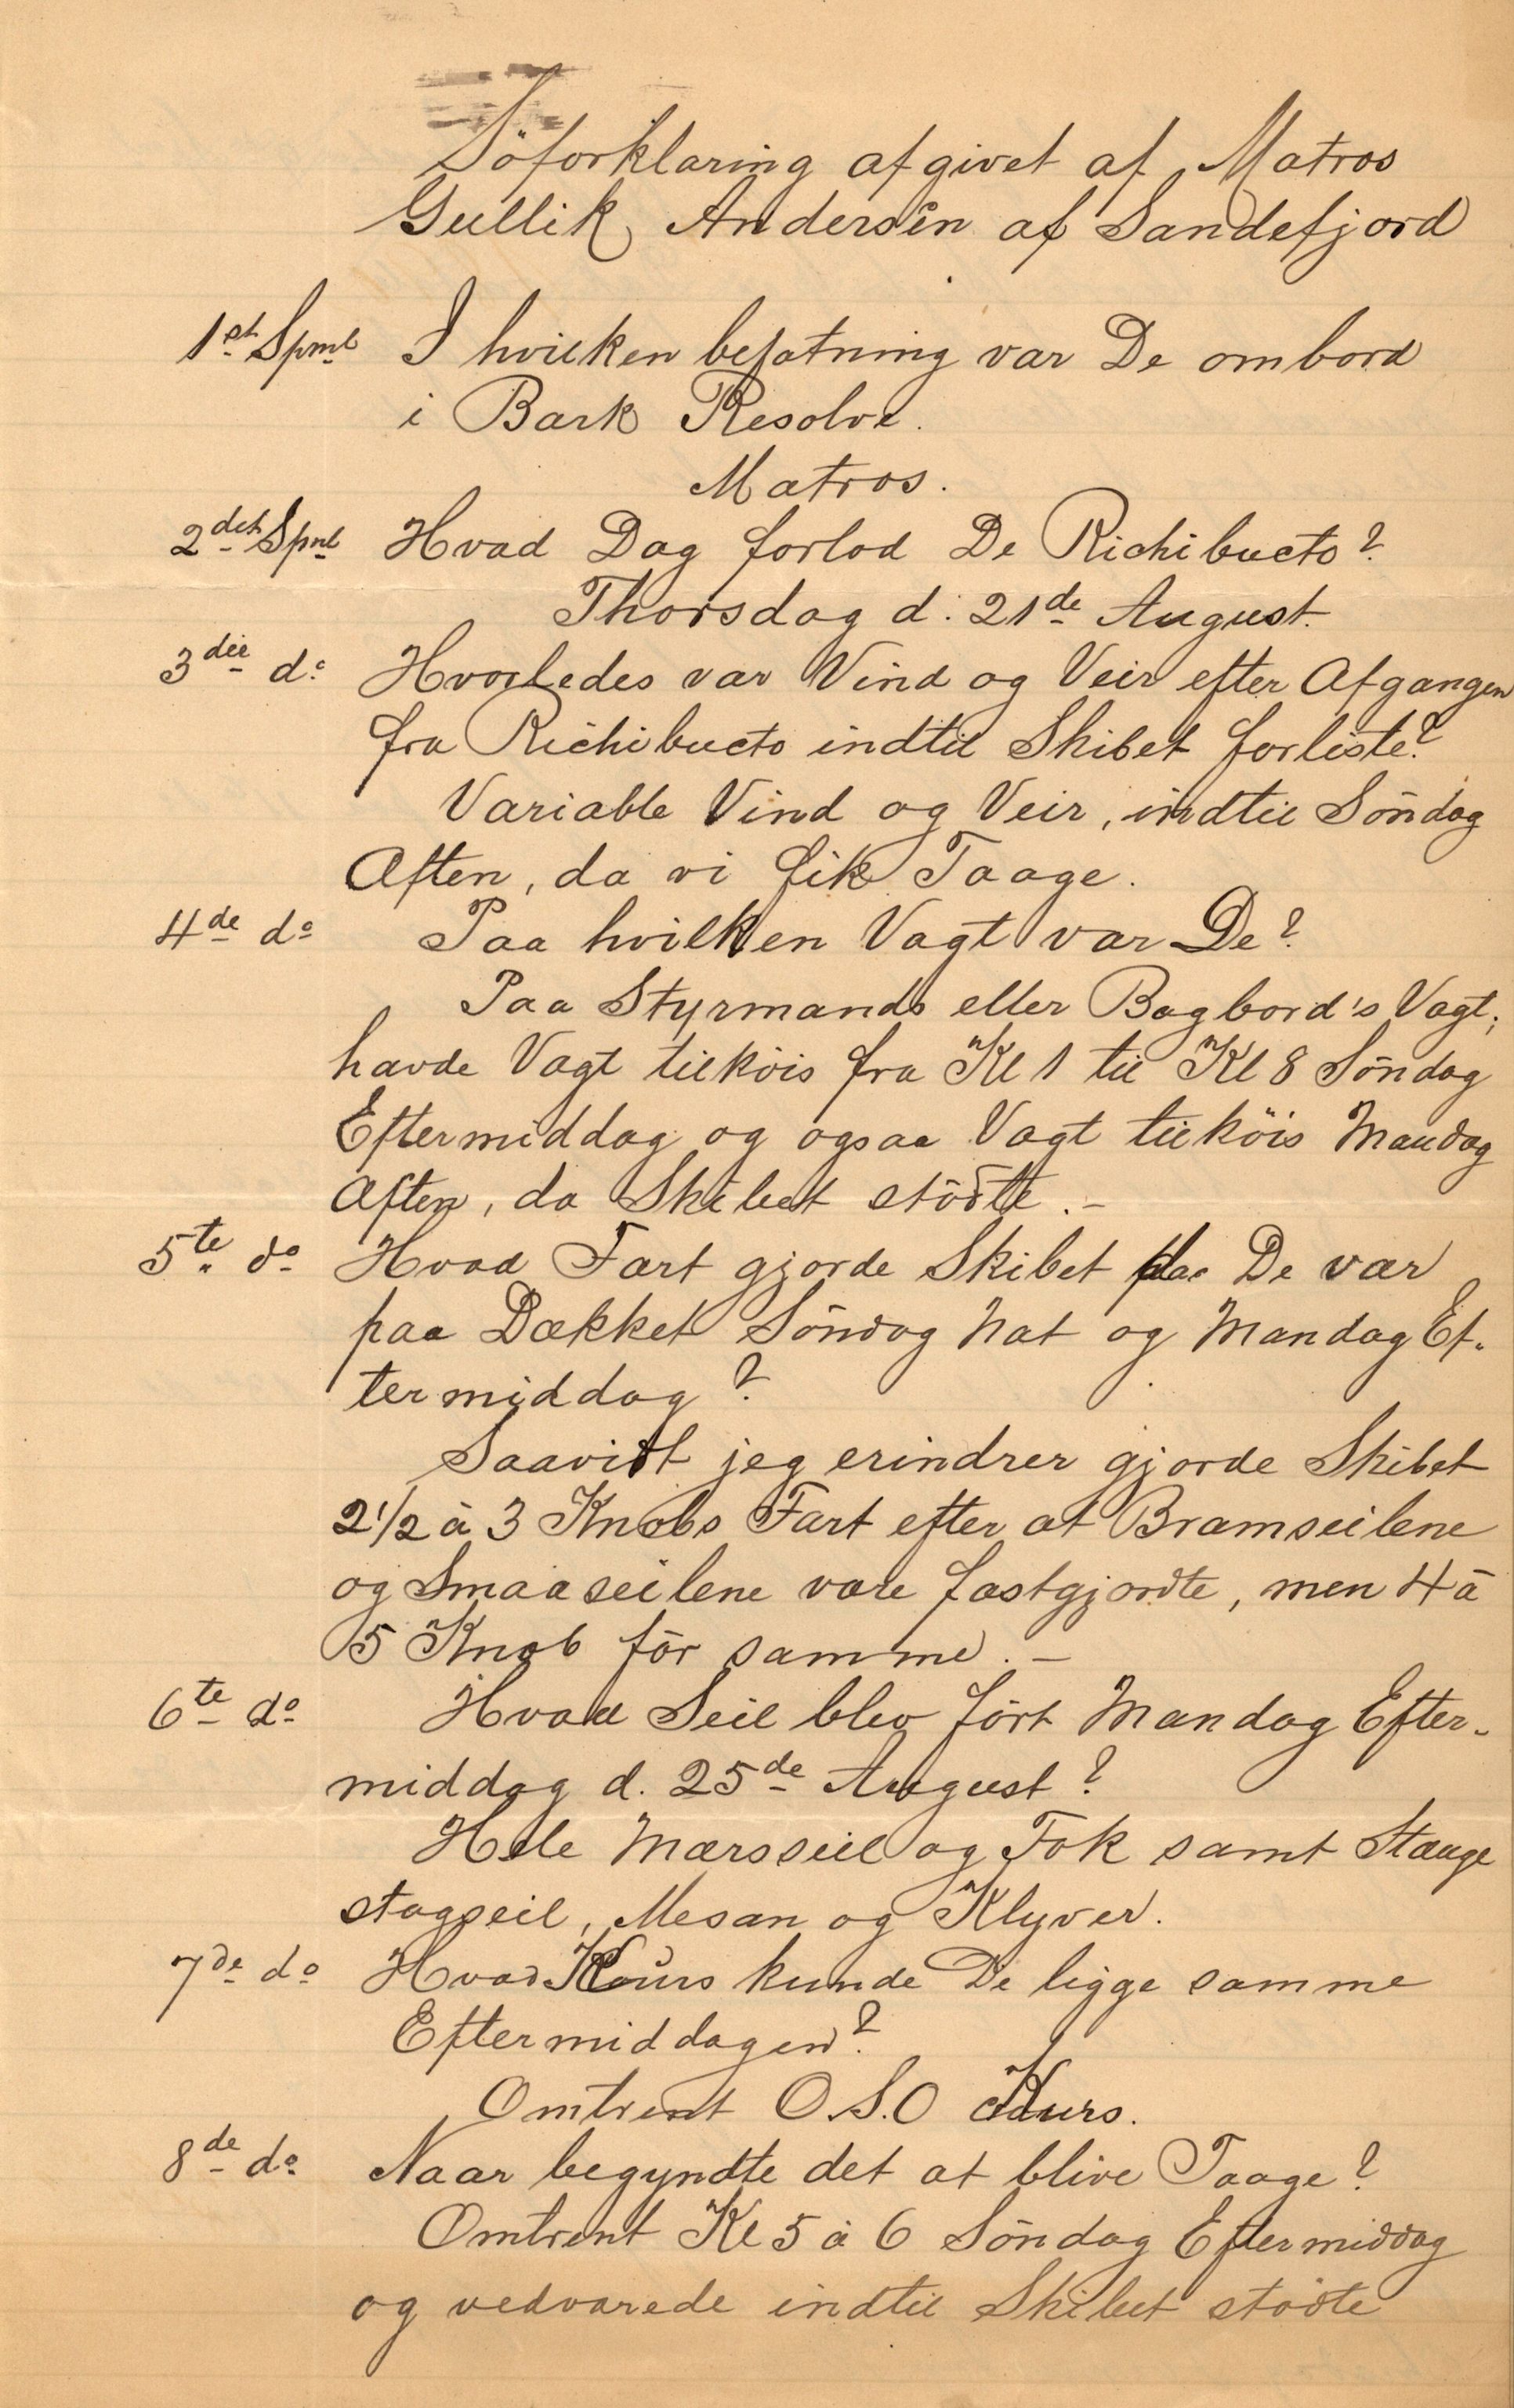 Söforklaring afgivet af Matros
Gullik Andersen af Sandefjord
1st Spml I hvilken befatning var De ombord
i Bark Resolve.
Matros.
2det Spml Hvad Dag forlod De Richibucto?
Thorsdag d. 21de August.
3die do Hvorledes var Vind og Veir efter Afgangen
fra Richibucto indtil Skibet forliste?
Variable Vind og Veir, indtil Söndag
Aften, da vi fik Taage.
4de do Paa hvilken Vagt var De?
Paa Styrmands eller Bagbord's Vagt;
havde Vagt tilköis fra Kl 1 til Kl 8 Söndag
Eftermiddag og ogsaa Vagt tilköis Mandag
Aften, da Skibet stödte. –
5te do Hvad Fart gjorde Skibet da De var
paa Dækket Söndag Nat og Mandag Ef-
termiddag?
Saavidt jeg erindrer gjorde Skibet
2 1/2 à 3 Knobs Fart efter at Bramseilene
og Smaaseilene vare fastgjordte, men 4 à
5 Knob för samme. –
6te do Hvad Seil blev fört Mandag Efter-
middag d. 25de August?
Hele Mærsseil og Fok samt Stænge
stagseil, Mesan og Klyver.
7de do Hvad Kurs kunde De ligge samme
Eftermiddagen?
Omtrent O.S.O Kurs.
8de do Naar begyndte det at blive Taage?
Omtrent Kl 5 à 6 Söndag Eftermiddag
og vedvarede indtil Skibet stödte